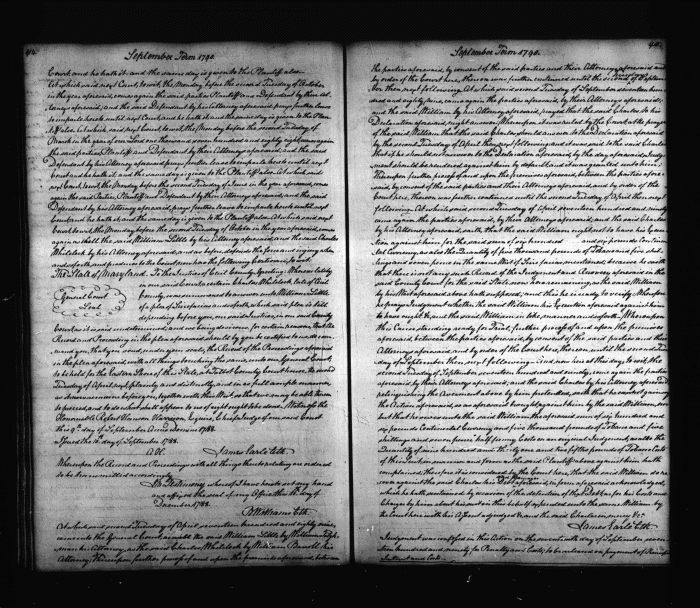 September Term 1790.
Court and he hath it and the same day is given to the Plaintiff also
At which said next Court, to wit, the Monday before the second Tuesday of October
in the year aforesaid, come again the said parties Plaintiff and Defendant by their At-
tornies aforesaid, and the said Defendant by his Attorney aforesaid, prays further leave
to imparle hereto until next Court, and he hath it and the same day is given to the Plain-
tiff also. At which said next Court, to wit, the Monday before the second Tuesday of
March in the year of our Lord seventeen hundred and eighty again
the said parties, Plaintiff and Defendant by their Attornies aforesaid, and the said
Defendant by his Attorney aforesaid prays further leave to imparle hereto until next
Court and he hath it, and the same day is given to the Plaintiff also. At which said
next Court, to wit, the Monday before the second Tuesday of June in the year aforesaid, come
again the said Parties, Plaintiff and Defendant by their Attornies aforesaid, and the said
Defendant by his Attorney aforesaid, prays further leave to imparle hereto until next
Court and he hath it, and the same day is given to the Plaintiff also. At which said next
Court to wit, the Monday before the second Tuesday of October in the year aforesaid, come
again as well the said William Little by his Attorney aforesaid, as the said Charles
Whitelock by his Attorney aforesaid, and
and forth and
The State of Maryland to the Justices of Cecil County, Greeting. Whereas lately
in our said Court a certain Charles Whitelock late of Cecil
County, was summoned to answer unto William Little
of a plea
depending before you, our said Justices, in our said County
General Court
Seal
Court, as it is said undetermined, and we being desirous for certain reasons, that the
Record and Proceeding in the plea aforesaid should by you be certified to us, do com-
mand you, that you send under your seals the Record of the Proceedings aforesaid
in the plea aforesaid, with all things touching the same, unto our General Court,
to be held for the Eastern Shore of this State, at Talbot County Court house, the second
Tuesday of April next, plainly and distinctly, and in as full and ample manner,
as the same remains before you, together with this Writ, so that we may be able thereon
to proceed, and to do what shall appear to us of right ought to be done. Witness the
Honourable Robert Hanson Harrison, Esquire, Chief Judge of our said Court
this 9th day of September Anno Domini 1788.
Issued the 16th day of September 1788.
James Earle Clk
Whereupon the Record and Proceedings with all things thereto relating are ordered
to be transmitted accordingly
In Testimony whereof I have hereto set my hand
and affixed the seal of my Office this day of
December 1788.
Clk
At which said second Tuesday of April seventeen hundred and eighty nine,
came into the General Court, as well the said William Little by William
man his Attorney, as the said Charles Whitelock by William his
Attorney; Thereupon further proof of and upon the premises aforesaid, between
September Term 1790.
the parties aforesaid, by consent of the said parties and their Attorneys aforesaid and
by order of the Court here, thereon was further continued until the second Tuesday of Septem-
ber then next following. At which said second Tuesday of September seventeen hun-
dred and eighty nine, came again the parties aforesaid, by their Attornies aforesaid;
and the said William by his Attorney aforesaid, prayed that the said Charles to his
Declaration aforesaid, might answer. Whereupon it was ruled by the Court at the prayer
of the said William that the said Charles should answer to the Declaration aforesaid
by the second Tuesday of April then next following and it was said to the said Charles
that if he should not answer to the Declaration aforesaid by the day aforesaid Judg-
ment should be rendered against him by default and it was granted unto him
Thereupon further proof of and upon the premises aforesaid, between the parties afore-
said, by consent of the said parties and their Attornies aforesaid, and by order of the
Court here, thereon was further continued until the second Tuesday of April then next
following. At which said second Tuesday of April, seventeen hundred and ninety
came again the parties aforesaid, by their Attornies aforesaid; and the said Charles
by his Attorney aforesaid, saith, that the said William ought not to have his Execu-
tion against him for the said sum of six hundred and six pounds Continen-
tal Currency, as also the Quantity of five thousand pounds of Tobacco and five shil-
lings and seven pence in the said Writ of Scire facias mentioned, because he saith
that there is not any such Record of the Judgment and Recovery aforesaid in the
said County Court for the said State now here remaining, as the said William,
by his Writ aforesaid above hath supposed, and this he is ready to verify. Wherefore
he prays Judgment whether the said William his Execution aforesaid against him
to have ought &c. and the said William in like manner and so forth. Whereupon
this Cause standing ready for Trial, further proof of and upon the premises
aforesaid, between the parties aforesaid, by consent of the said parties and their
Attornies aforesaid, and by order of the Court here, thereon until the second Tues-
day of September then next following. And now here at this day, to wit, the second
Tuesday of September seventeen hundred and ninety, come again the parties
aforesaid, by their Attornies aforesaid, and the said Charles by his Attorney aforesaid
relinquishing the Averment above by him pretended, saith that he cannot gainsay
the Action aforesaid, so as aforesaid brought against him by the said William, nor
but that he owes unto the said William, the aforesaid sum of six hundred and
six pounds Continental Currency and five thousand pounds of Tobacco and five
shillings and seven pence half penny Costs on an original Judgment, as also the
Quantity of nine hundred and thirty one and two fifths pounds of Tobacco Costs
of this Action in manner and form as the said Plaintiff above against him hath
complained; Therefore it is considered by the Court here, that the said William do re-
cover against the said Charles his Debt aforesaid, in form aforesaid acknowledged,
which he hath sustained by occasion of the detention of that Debt as for his Costs and
Charges by him about his suit in this behalf expended, unto the said William by
the Court here with his Assent adjudged, and the said Charles in mercy &c.
James Earle Clk
Judgment was confessed in this Action on the seventeenth day of September seven-
teen hundred and ninety for Penalty and Costs, to be released on payment of Principal
Interest and Costs.